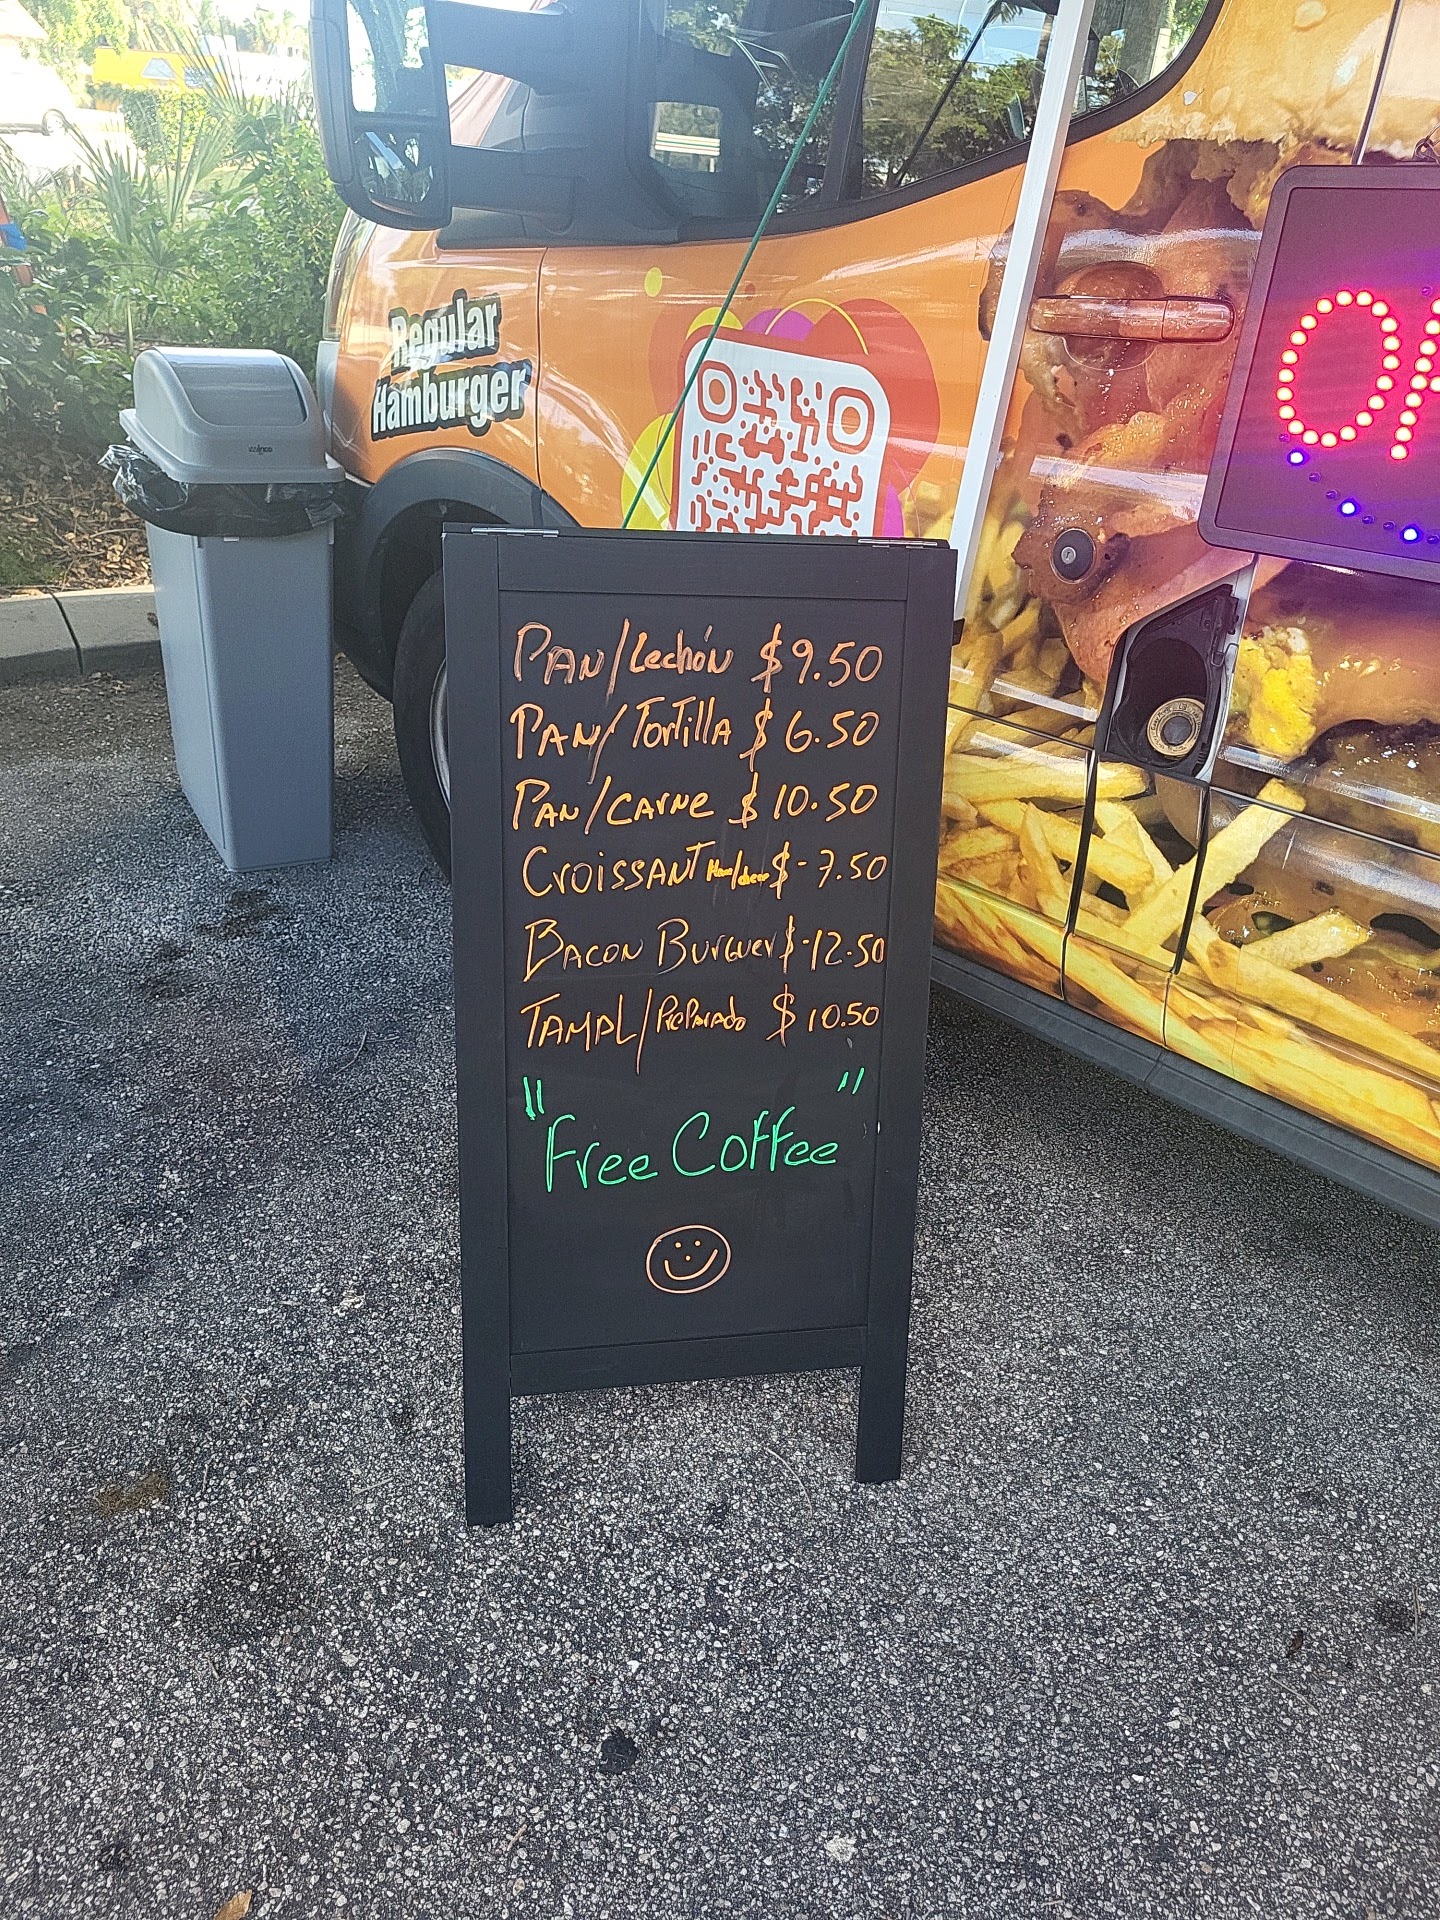 Regular
Hamburger
OP
PAN/Lechón $9.50
PAN/Tortilla $6.50
PAN/CArNe $10.50
CroissANT $-7.50
BACON Burguer $-12.50
TAMAL/PrePArado $10.50
"Free Coffee"